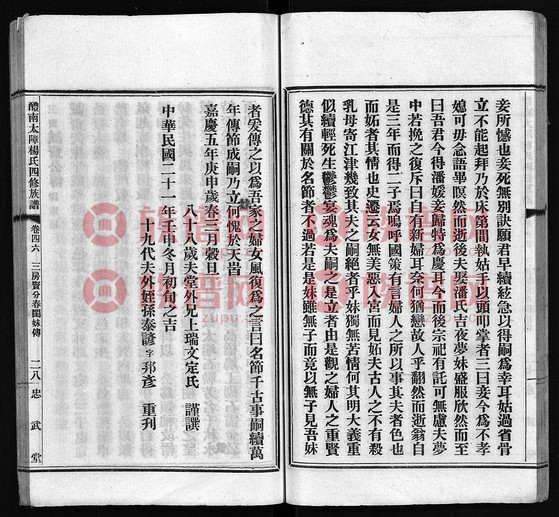 妾所憾也妾死無別訣願君早續絃急以得嗣爲幸耳姑過省骨
立不能起拜乃於床第間執姑手以頭叩掌者三曰妾今爲不孝
媳可毋念語畢瞑然而逝後夫娶潘氏吉夜夢妹盛服欣然而至
曰吾君今得潘媛妾歸特爲慶耳今而後宗祀有託可無慮夫夢
中若挽之復斥曰自有新婦耳奈何猶戀故人乎翻然而逝翁自
是三年而得二子焉嗚呼國策有言婦人之所以事其夫者色也
而妬者其情也史遷云女無美惡入宮而見妬夫古人之不有殺
乳母寄江津幾致其夫嗣絕者乎妹獨無苦情何其明大義重
似續輕死生鬱鬱哀魂爲夫嗣之是立者由是觀之婦人之重賢
德其有關於名節者不過若是是妹雖無子而竟以無子見吾妹
者爰傳之以爲吾家之婦女風復爲之言曰名節千古事嗣續萬
年傳節成嗣乃立何愧於天旹
嘉慶五年庚申歲春三月穀旦
八十八歲夫堂外兄上瑞文定氏 謹譔
中華民國二十一年壬申冬月初旬之吉
十九代夫外姪孫泰諺字邦彥 重刋
醴南太障楊氏四修族譜 卷四六 三房賢分春閣妹傳 二八 忠武堂